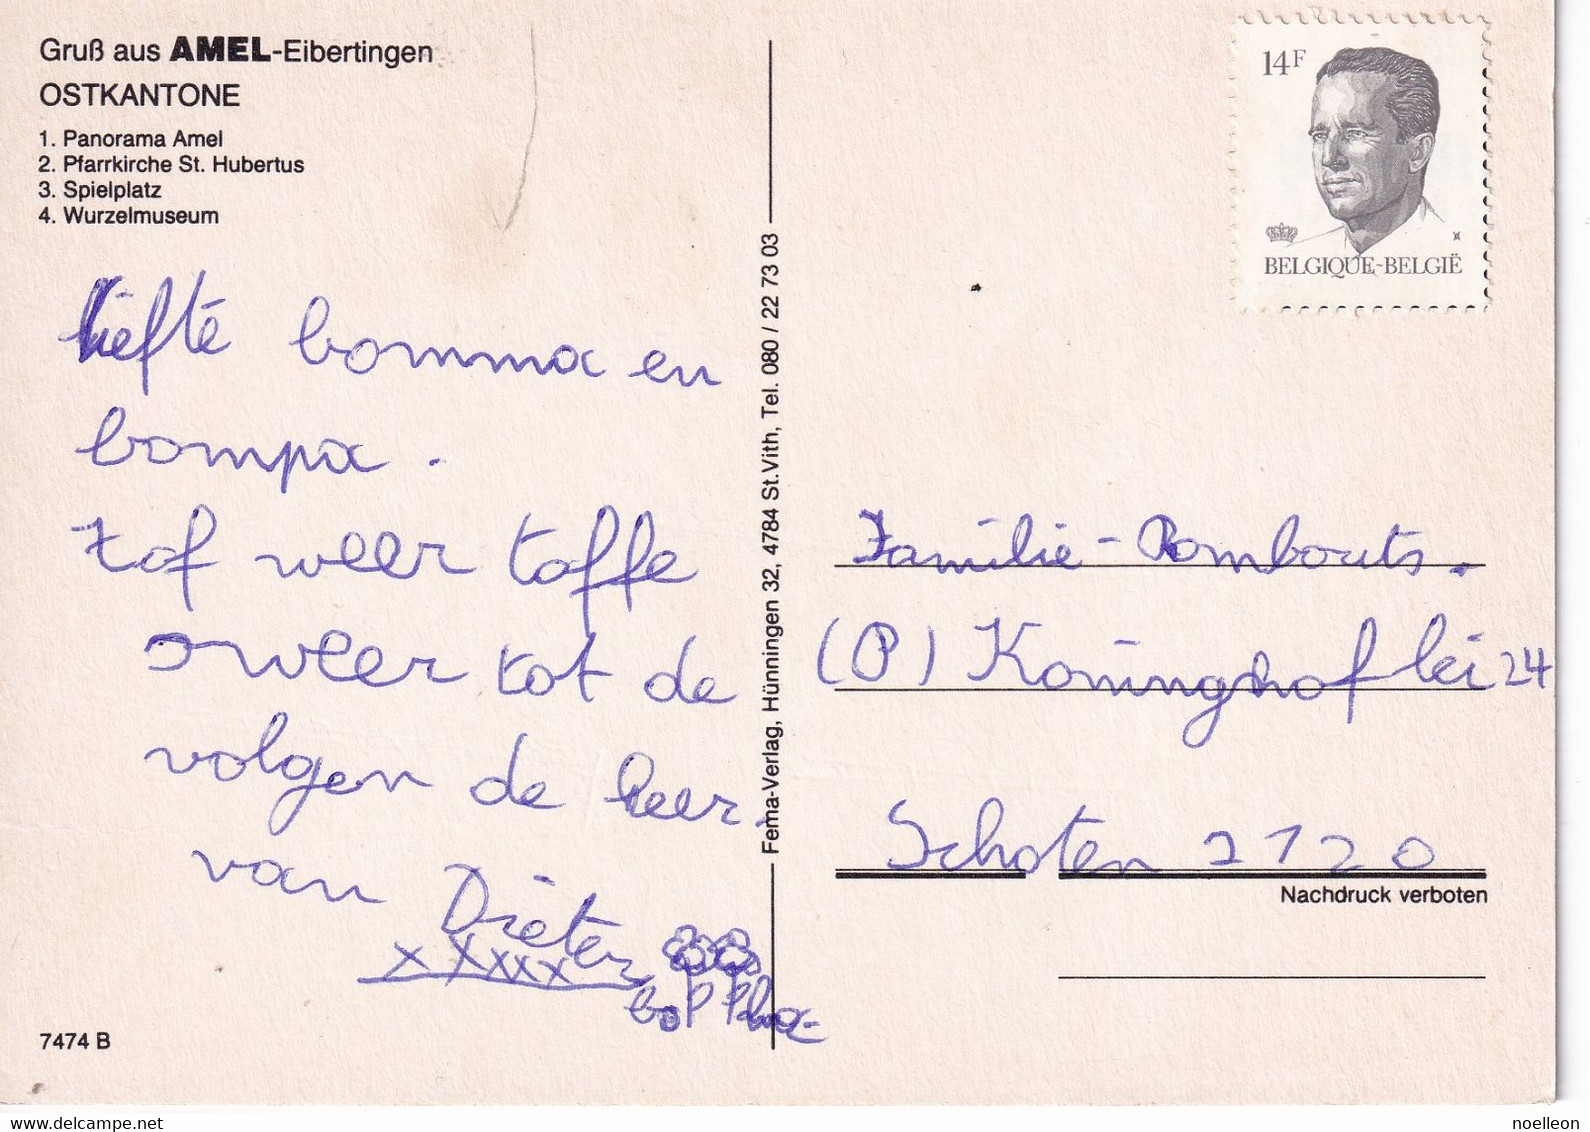 Gruß aus AMEL-Eibertingen
OSTKANTONE
1. Panorama Amel
2. Pfarrkirche St. Hubertus
3. Spielplatz
4. Wurzelmuseum
14F
BELGIQUE-BELGIË
liefte bomma en
bompa.
tof weer toffe
sweer tot de
volgen de keer.
van Dieter
xXxxx
Fema-Verlag, Hünningen 32, 4784 St.Vith, Tel. 080 / 22 73 03
Familie-Rombouts.
(P) Koninghoflei 24
Schoten 2120
Nachdruck verboten
7474 B
www.delcampe.net
noelleon